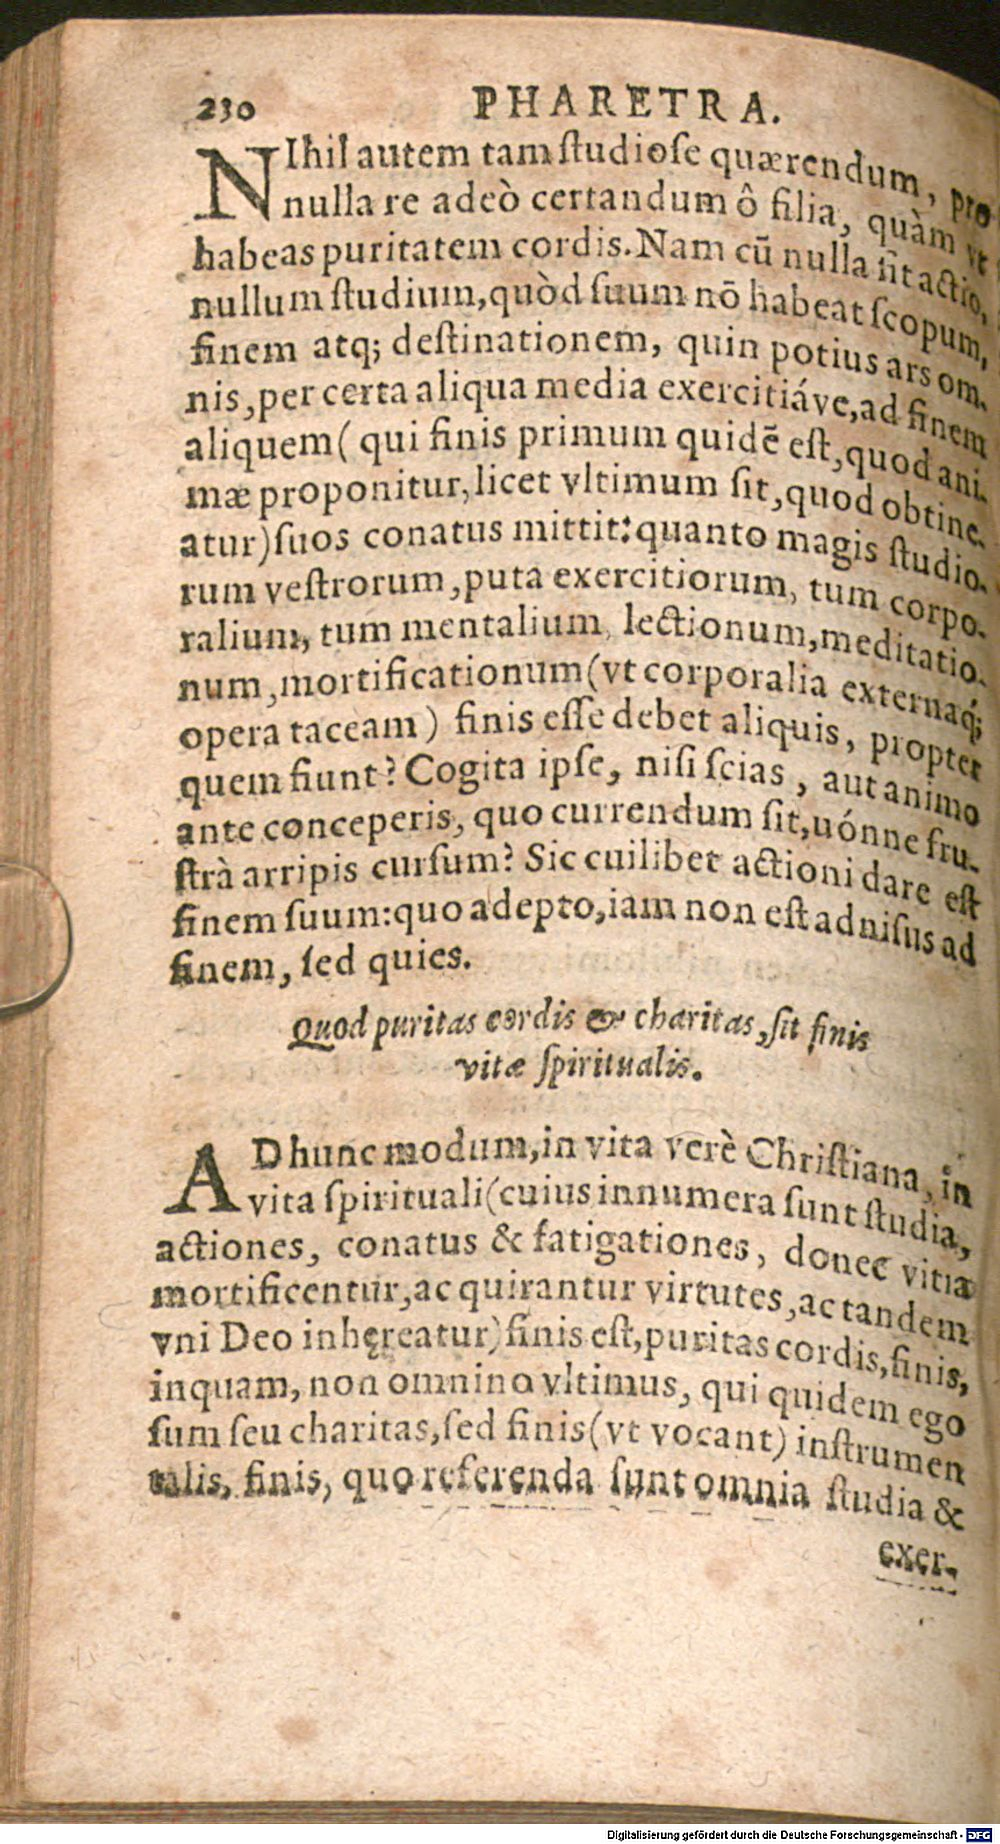 230 PHARETRA.
NIhil autem tam ſtudioſe quærendum, pro
nulla re adeò certandum ô filia, quàm vt
habeas puritatem cordis. Nam cū nulla ſit actio,
nullum ſtudium, quòd ſuum nō habeat ſcopum,
finem atq; deſtinationem, quin potius ars om-
nis, per certa aliqua media exercitiáve, ad finem
aliquem (qui finis primum quidē eſt, quod ani-
mæ proponitur, licet vltimum ſit, quod obtine-
atur) ſuos conatus mittit: quanto magis ſtudio-
rum veſtrorum, puta exercitiorum, tum corpo-
ralium, tum mentalium, lectionum, meditatio-
num, mortificationum (vt corporalia externaq́;
opera taceam) finis eſſe debet aliquis, propter
quem fiunt? Cogita ipſe, niſi ſcias, aut animo
ante conceperis, quo currendum ſit, uónne fru-
ſtrà arripis curſum? Sic cuilibet actioni dare eſt
finem ſuum: quo adepto, iam non eſt adniſus ad
finem, ſed quies.
Quod puritas cordis & charitas, ſit finis
vitæ ſpiritualis.
AD hunc modum, in vita verè Chriſtiana, in
vita ſpirituali (cuius innumera ſunt ſtudia,
actiones, conatus & fatigationes, donec vitia
mortificentur, acquirantur virtutes, ac tandem
vni Deo inhęreatur) finis eſt, puritas cordis, finis,
inquam, non omnino vltimus, qui quidem ego
ſum ſeu charitas, ſed finis (vt vocant) inſtrumen
talis, finis, quo referenda ſunt omnia ſtudia &
exer-
Digitalisierung gefördert durch die Deutsche Forschungsgemeinschaft - DFG